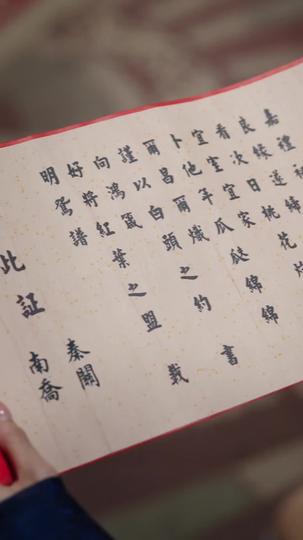 嘉禮
良緣遂締
看次日桃花
宜室宜家
卜他年瓜瓞綿綿
爾昌爾熾
謹以白頭之約書
向鴻箋
好將紅葉之盟載
明鴛譜
此証
秦關
南喬